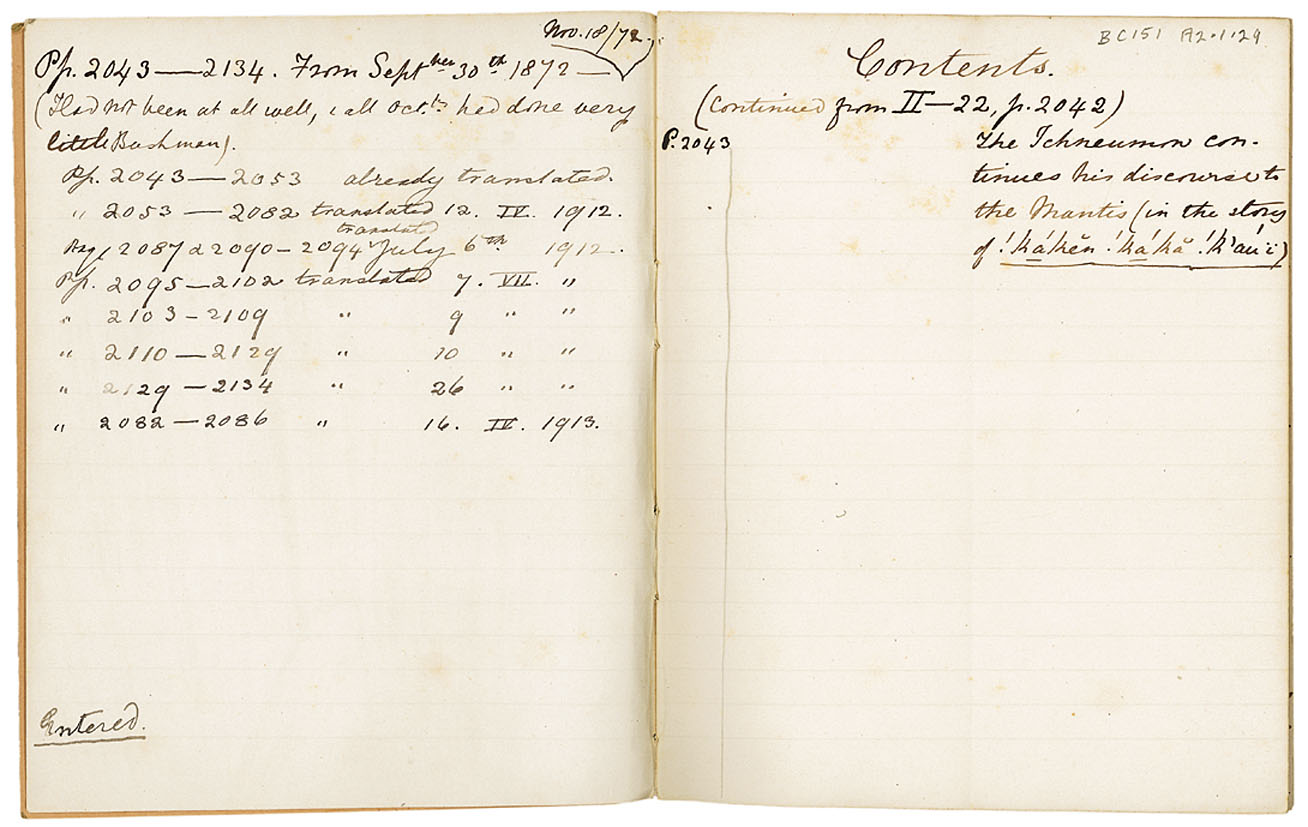 Nov. 18/72.
Pp. 2043—2134. From Septber 30th 1872—
(Had not been at all well, & all Octr had done very
little Bushman).
Pp. 2043—2053 already translated.
" 2053—2082 translated 12. IV. 1912.
translated
Page 2087 & 2090—2094 July 6th 1912.
Pp. 2095—2102 translated 7. VII. "
" 2103—2109 " 9 " "
" 2110—2129 " 10 " "
" 2129—2134 " 26 " "
" 2082—2086 " 16. IV. 1913.
Entered.
BC151 A2.1.29
Contents.
(Continued from II—22, p. 2042)
P. 2043 The Ichneumon con-
tinues his discourse to
the Mantis (in the story
of